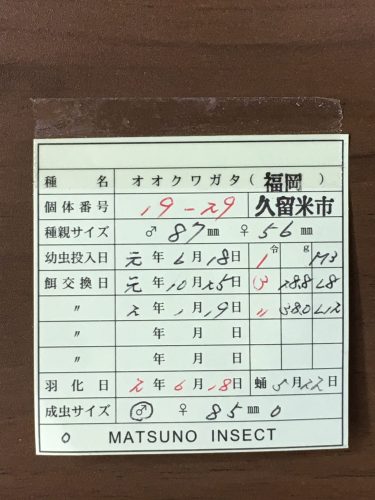 種 名 オオクワガタ ( 福岡 )
個体番号 19-29 久留米市
種親サイズ ♂ 87 mm ♀ 56 mm
幼虫投入日 元 年 6 月 18 日 1 令 g M3
餌交換日 元 年 10 月 25 日 3 28.8 L8
〃 2 年 1 月 19 日 〃 38.0 L12
〃 年 月 日
〃 年 月 日
羽化日 2 年 6 月 18 日 蛹 5 月 22 日
成虫サイズ ♂ ♀ 85 mm 0
0 MATSUNO INSECT